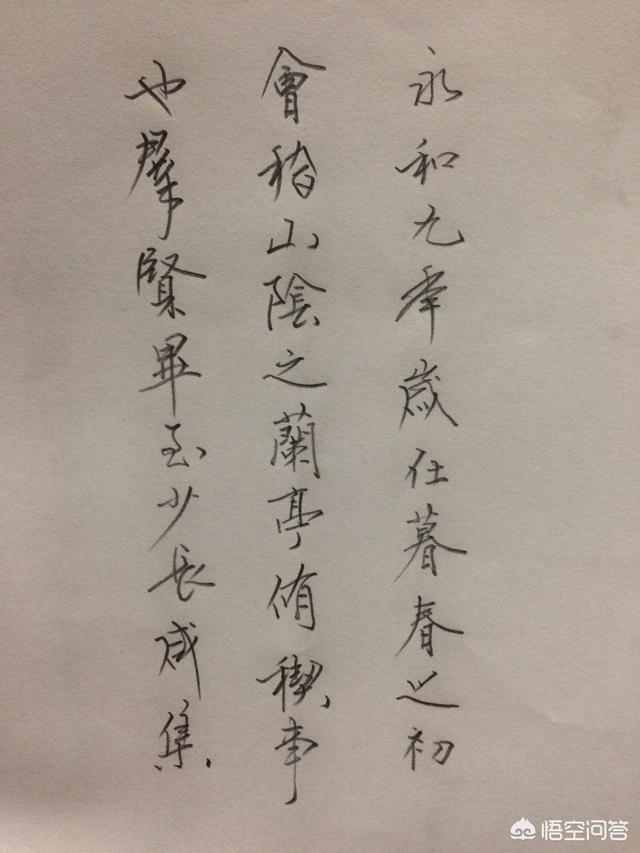 永和九年歲在暮春之初
會稽山陰之蘭亭脩禊事
也羣賢畢至少長咸集
悟空问答